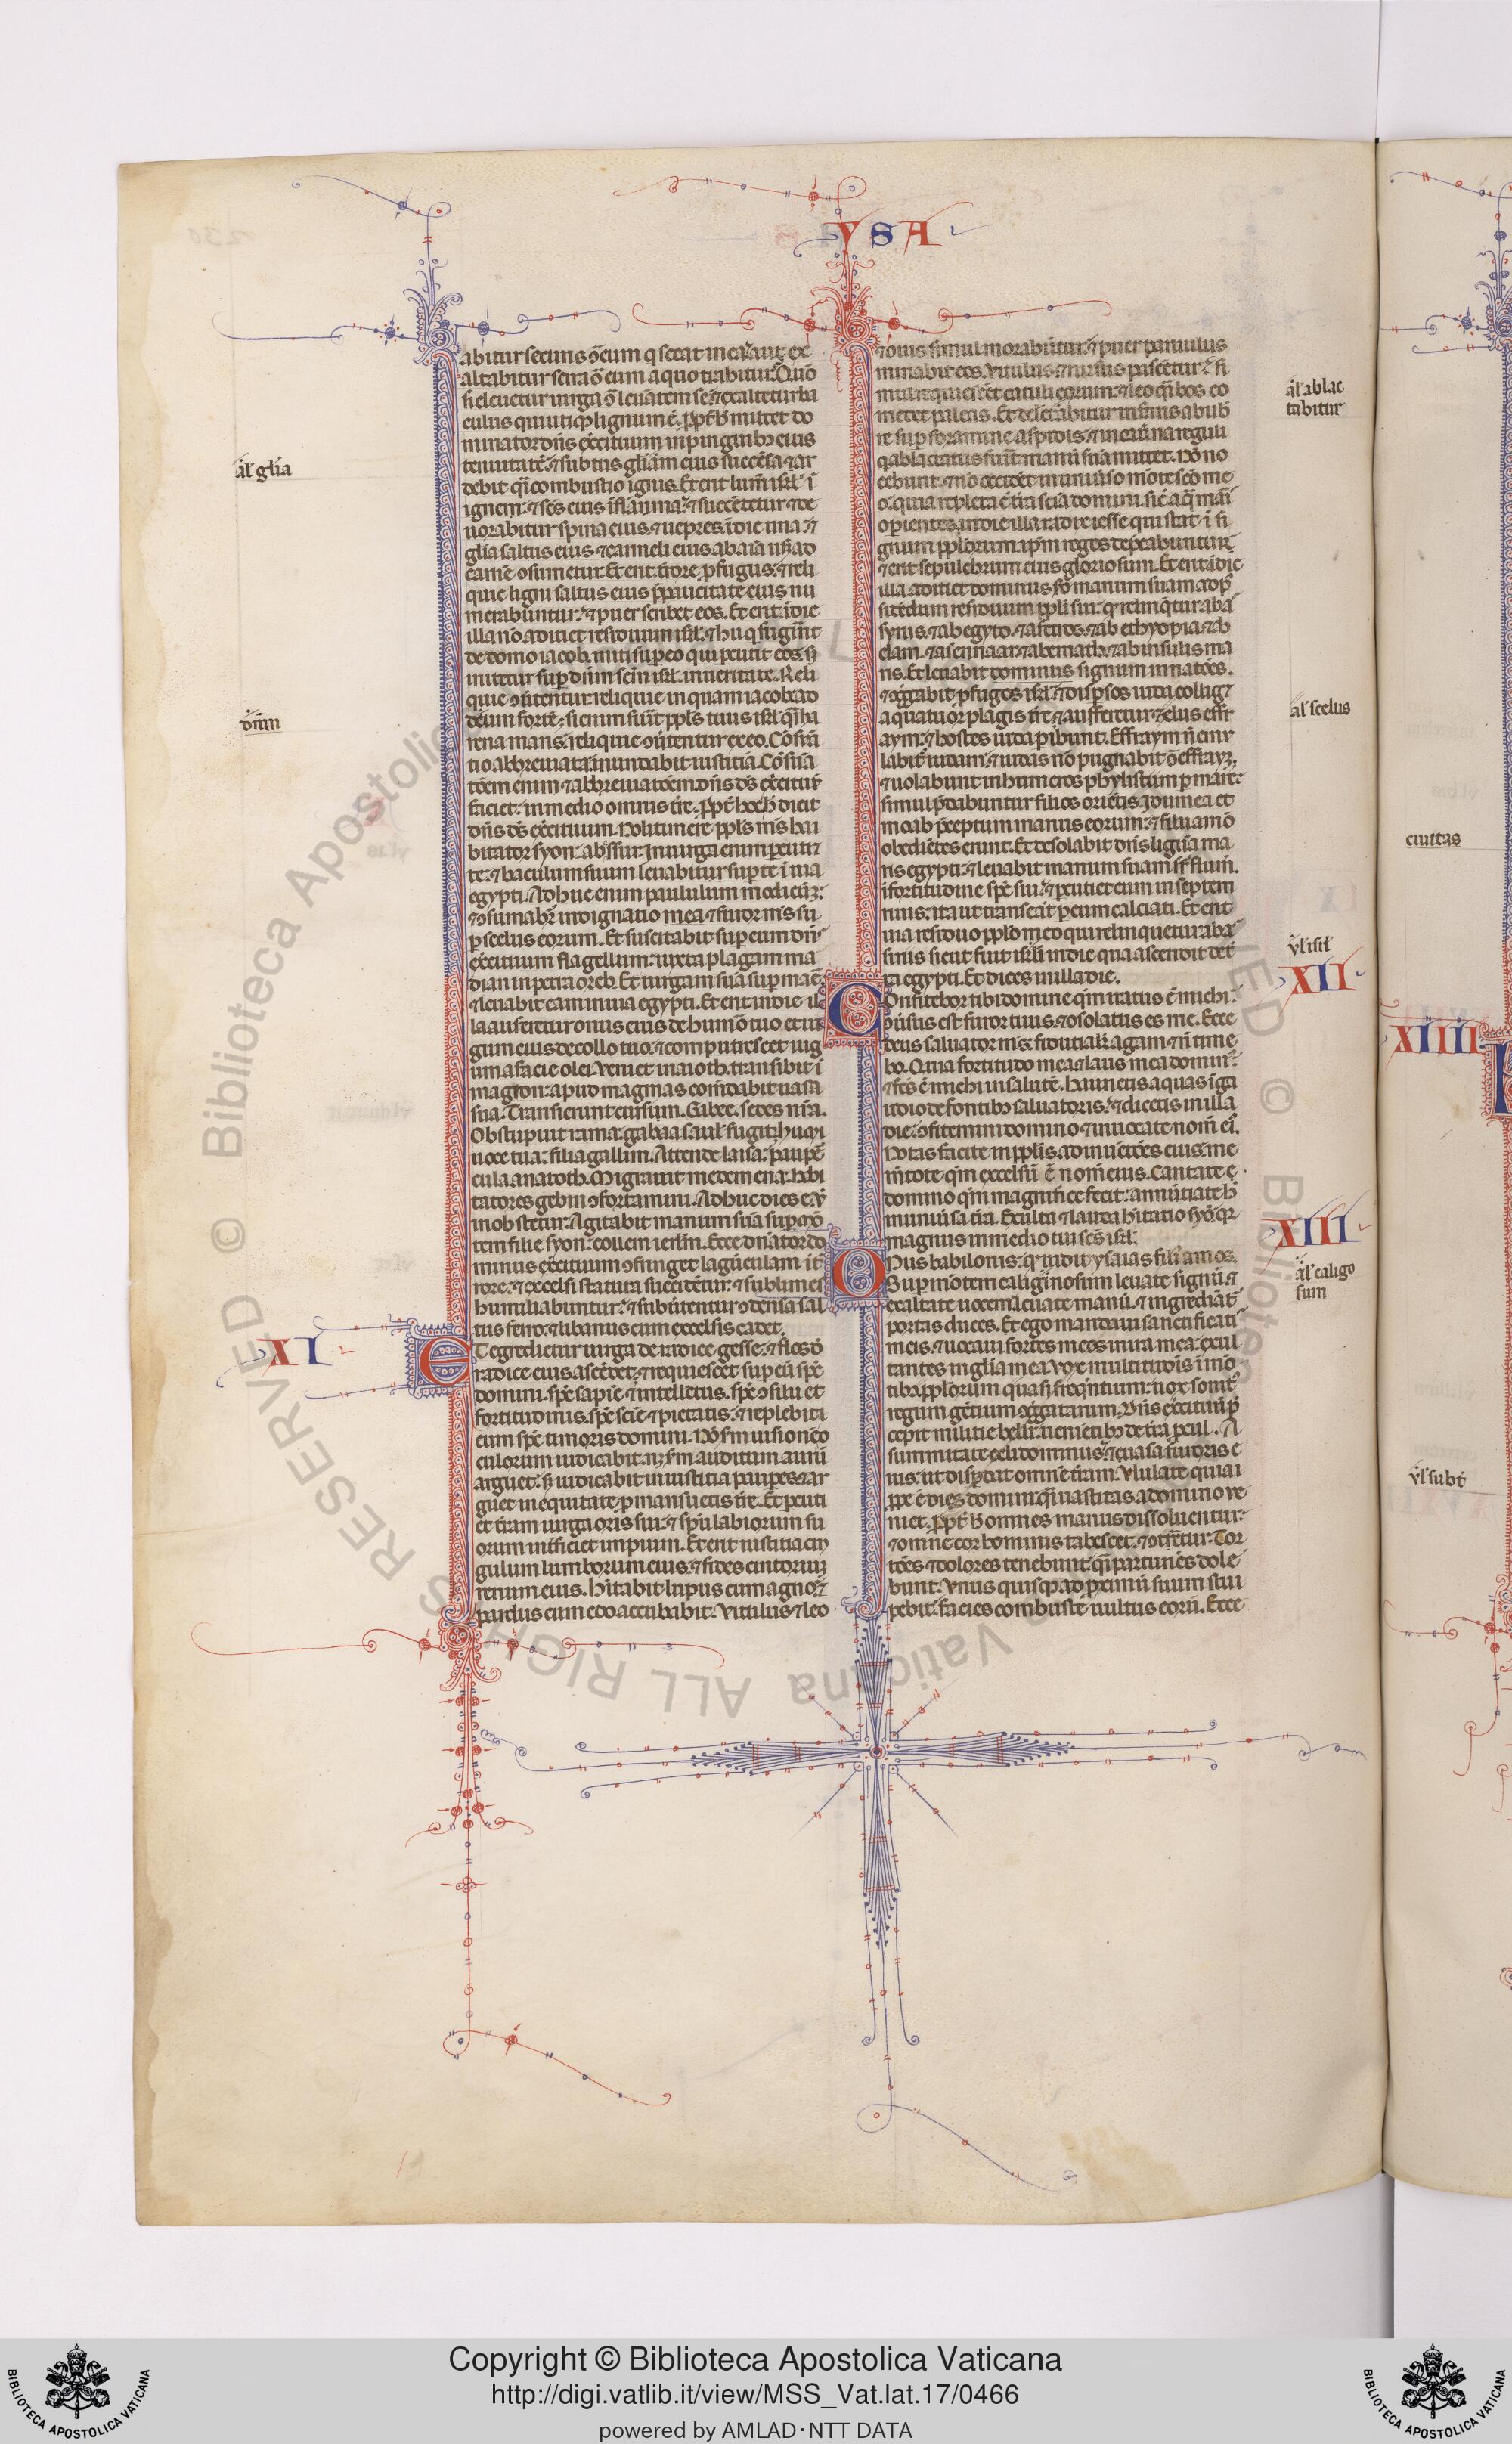 YSA
abitur securis ɔ̄ eum q̄ secat in ea: aut ex
altabitur serra ɔ̄ eum a quo trahitur: Quō
si eleuetur uirga ɔ̄ leuātem se: ⁊ exaltetur ba
culus qui utiq; lignum ē. ꝓpt̄ h̄ mittet do
minator dn̄s exercituum in pinguibȝ eius
tenuitatē: ⁊ subtus gl̄iam eius succēsa ⁊ ar
debit q̄i combustio ignis. Et erit lum̄ isrl̄ ī
igneni: ⁊ sc̄s eius ī flamma: ⁊ succēdetur ⁊ de
uorabitur spina eius ⁊ uepres ī die una: ⁊
gl̄ia saltus eius ⁊ carmeli eius ab aīa usq; ad
carnē ɔsumetur. Et erit t̄rore ꝓfugus: ⁊ reli
quie ligni saltus eius p̄ paucitate eius nu
merabuntur: ⁊ puer scribet eos. Et erit ī die
illa nō adiciet residuum isrl̄. ⁊ hii q̄ fugerīt
de domo iacob. initi sup̄ eo qui ꝑcutit eos: sȝ
innitetur sup̄ dn̄m scm̄ isrl̄ in ueritate. Reli
quie ɔuertentur: reliquie inquam iacob: ad
deum fortē. si enim fuīt ppl̄s tuus isrl̄ q̄i ha
rena maris: reliquie ɔuertentur ex eo. Cōsūma
tio abbreuiata: inundabit iustitia. Cōsūma
tōem enim ⁊ abbreuiatōem dn̄s ds̄ exercituū
faciet: in medio omnis t̄re. ꝓpt̄ hoc h̄ dicit
dn̄s ds̄ exercituum. Noli timere ppl̄s m̄s ha
bitator syon: ab assur. In uirga enim ꝑcutiet
te: ⁊ baculum suum leuabit sup̄ te ī uia
egypti. Adhuc enim paululum modicūȝ:
⁊ ɔsumabit̄ indignatio mea ⁊ furor m̄s su
ꝑ scelus eorum. Et suscitabit sup̄ eum dn̄s
exercituum flagellum: iuxta plagam ma
dian in petra oreb. Et uirgam suā sup̄ mare:
⁊ leuabit eam in uia egypti. Et erit in die il
la: auferetur onus eius de humō tuo et iu
gum eius de collo tuo: ⁊ computrescet iug
um a facie olei. Veniet in aioth: transibit ī
magron: apud magmas com̄dabit uasa
sua. Transierunt cursum. Gabee. sedes nr̄a.
Obstupuit rama: gabaa saul fugit: hinni
uoce tua: filia gallim. Attende laisa: pauꝑ
cula anatoth. Migrauit medemena: habi
tatores gebin ɔfortamini. Adhuc dies ē ut
in nob stetur. Agitabit manum suā sup̄ mō
tem filie syon: collem ierl̄m. Ecce dn̄ator do
minus exercituum ɔfringet lagūculam in t̄
rore: ⁊ excelsi statura succidētur: ⁊ sublimes
humiliabuntur: ⁊ subūtentur ɔdensa sal
tus ferro: ⁊ libanus cum excelsis cadet.
Et egredietur uirga de radice gesse: ⁊ flos d̄
radice eius ascēdet: ⁊ requiescet sup̄ eū sp̄c
domini. sp̄c sapīe ⁊ intellectus. sp̄c ɔsilii et
fortitudinis. sp̄c scīe ⁊ pietatis: ⁊ replebit
eum sp̄c timoris domini. Nō sm̄ uisionē o
culorum iudicabit: nȝ sm̄ auditum aurium
arguet: sȝ iudicabit in iustitia pauꝑes: ⁊ ar
guet in equitate ꝓ mansuetis t̄re. Et ꝑcuti
et t̄ram uirga oris sui: ⁊ spū labiorum su
orum int̄ficiet impium. Et erit iustitia cin
gulum lumborum eius: ⁊ fides cintoriūȝ
renum eius. Habitabit lupus cum agno: ⁊
pardus cum edo accubabit: Vitulus ⁊ leo
⁊ ouis simul morabūtur: ⁊ puer paruulus
minabit eos. Vitulus ⁊ ursus pascētur: si
mul requiescēt catuli eorum: ⁊ leo q̄i bos co
medet paleas. Et delectabitur infans ab ub
re sup̄ foramine aspidis: ⁊ in cauīna reguli
q̄ ablactatus fuīt manū suā mittet. Nō no
cebunt: ⁊ nō occidēt in uniuīso mōte scō me
o: quia repleta ē t̄ra sciā domini. sīc aq̄ maris
oꝑientes. in die illa radix iesse qui stat ī si
gnum ppl̄orum: ip̄m reges dep̄cabuntur
⁊ erit sepulchrum eius gloriosum. Et erit ī die
illa adiciet dominus sc̄do manum suam ad pos
sidēdum residuum ppl̄i sui: q̄ relinq̄tur ab a
syriis. ⁊ ab egypto. ⁊ a fetros. ⁊ ab ethyopia. ⁊ ab
elam. ⁊ a sennaar. ⁊ ab emath. ⁊ ab insulis ma
ris. Et leuabit dominus signum in natōes.
⁊ ɔg̃gabit ꝓfugos isrl̄: ⁊ disꝑsos iuda collig⁊
a quatuor plagis t̄re: ⁊ auferetur ⁊elus effr
aym: ⁊ hostes iuda ꝑibunt. Effraym n̄ emu
labit̄ iudam: ⁊ iudas nō pugnabit ɔ̄ effraȝ.
⁊ uolabunt in humeros phylistim ꝑ mare:
simul p̄dabuntur filios oriētis. Idumea et
moab p̄ceptum manus eorum: ⁊ filii amō
obediētes erunt. Et desolabit dn̄s liguā ma
ris egypti: ⁊ leuabit manum suam sr̄ flum̄.
ī fortitudine sp̄c sui: ⁊ ꝑcutiet eum in septem
riuis: ita ut transeāt ꝑ eum calciati. Et erit
uia residuo ppl̄o meo qui relinquetur ab a
siriis sicut fuit isrl̄i in die qua ascendit de t̄
ra egypti. Et dices in illa die.
Confitebor tibi domine qm̄ iratus ē michi:
ɔuīsus est furor tuus: ⁊ ɔsolatus es me. Ecce
deus saluator m̄s: fiducialr̄ agam ⁊ n̄ time
bo. Quia fortitudo mea ⁊ laus mea domin̄:
⁊ fc̄s ē michi in salutē. Haurietis aquas ī ga
udio de fontibȝ saluatoris: ⁊ dicetis in illa
die: ɔfitemini domino ⁊ inuocate nom̄ ei᷒.
Notas facite in ppl̄is adinuētōes eius: me
m̄tote qm̄ excelsū ē nom̄ eius. Cantate
domino qm̄ magnifice fecit: annūtiate h̄
in uniuīsa t̄ra. Exulta ⁊ lauda hītatio syō: q̄
magnus in medio tui sc̄s isrl̄.
Onus babilonis: q̄ uidit ysaias fili᷒ amos.
Sup̄ mōtem caliginosum leuate signū: ⁊
exaltate uocem. leuate manū: ⁊ ingrediāt̄
portas duces. Et ego mandaui sanctificatis
meis: ⁊ uocaui fortes meos in ira mea: exul
tantes in gl̄ia mea. Vox multitudīs ī mō
tibȝ: ppl̄orum quasi freq̄ntium: uox sonit᷒
regum gētium ɔg̃gatarum. Dn̄s exercituū p̄
cepit militie belli: uenīetibȝ de t̄ra ꝓcul. A
summitate celi dominus: ⁊ euasa furoris e
ius: ut disꝑdat omnē t̄ram. Vlulate: quia
ꝓpe ē dies domini: q̄i uastitas a domino ue
niet. ꝓpt̄ h̄ omnes manus dissoluentur:
⁊ omne cor hominis tabescet: ⁊ ɔt̄retur. Tor
tōes ⁊ dolores tenebunt: q̄i parturiēs dole
bunt. Vnus quisq; ad ꝓximū suum stu
pebit: facies combuste uultus eorū. Ecce
al̄ gl̄ia
dn̄m
XI
al̄ ablac
tabitur
al̄ scelus
vl̄ isrl̄
XII
XIII
al̄ caligo
sum
ciuitas
XIIII
vl̄ subt̄
Copyright © Biblioteca Apostolica Vaticana
http://digi.vatlib.it/view/MSS_Vat.lat.17/0466
powered by AMLAD·NTT DATA
BIBLIOTECA APOSTOLICA VATICANA
BIBLIOTECA APOSTOLICA VATICANA
© Biblioteca Apostolica Vaticana ALL RIGHTS RESERVED